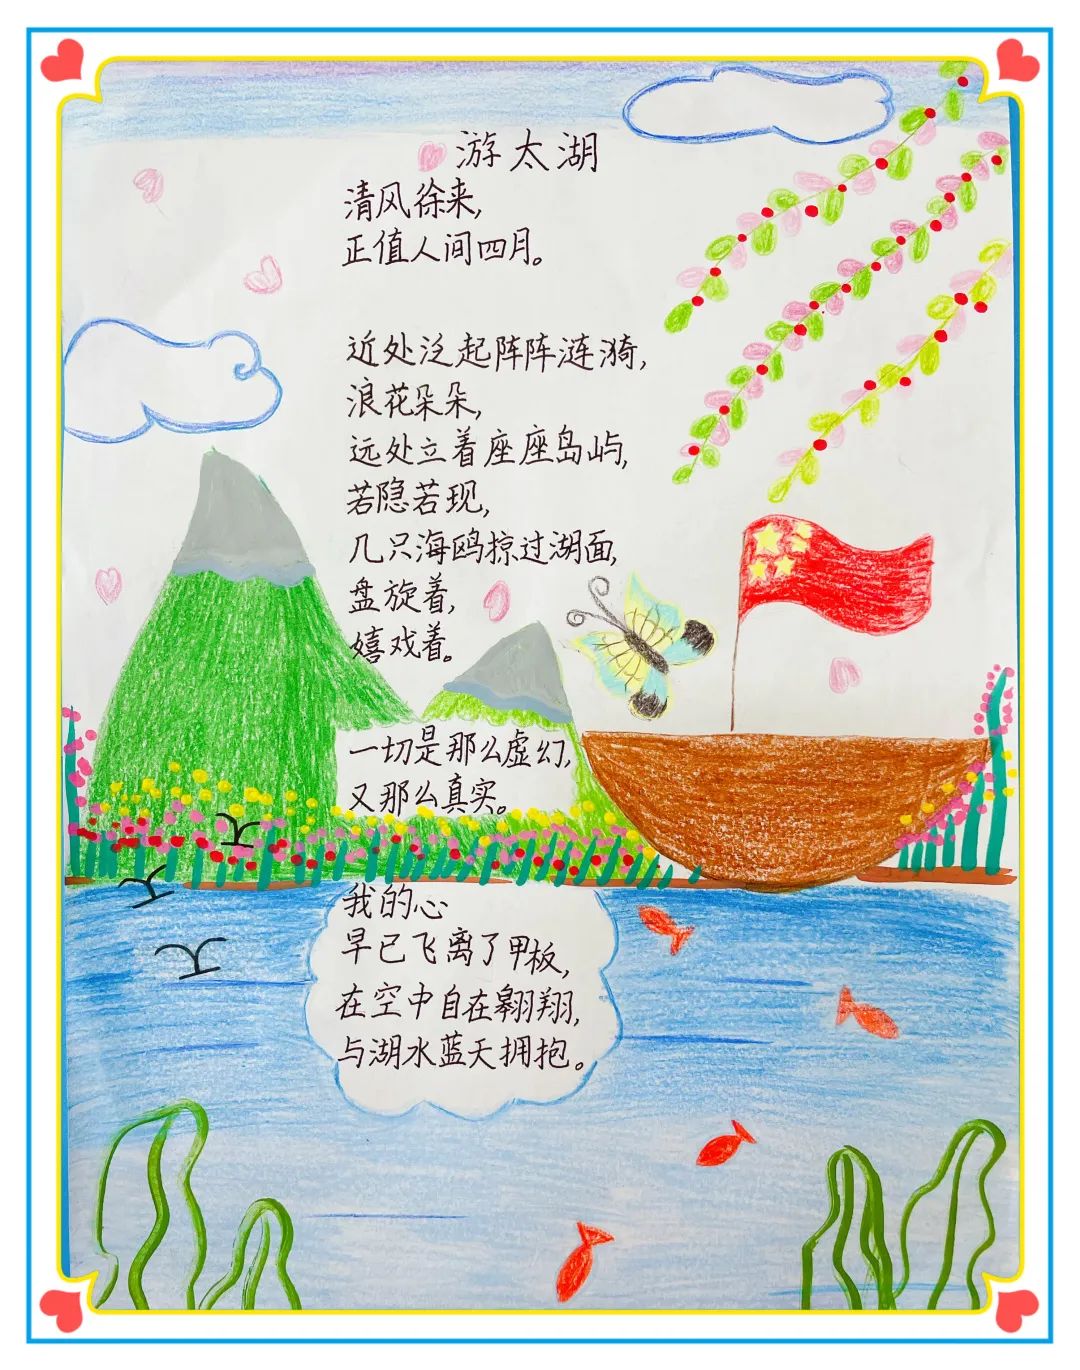 游太湖
清风徐来,
正值人间四月。
近处泛起阵阵涟漪,
浪花朵朵,
远处立着座座岛屿,
若隐若现,
几只海鸥掠过湖面,
盘旋着,
嬉戏着。
一切是那么虚幻,
又那么真实。
我的心
早已飞离了甲板,
在空中自在翱翔,
与湖水蓝天拥抱。